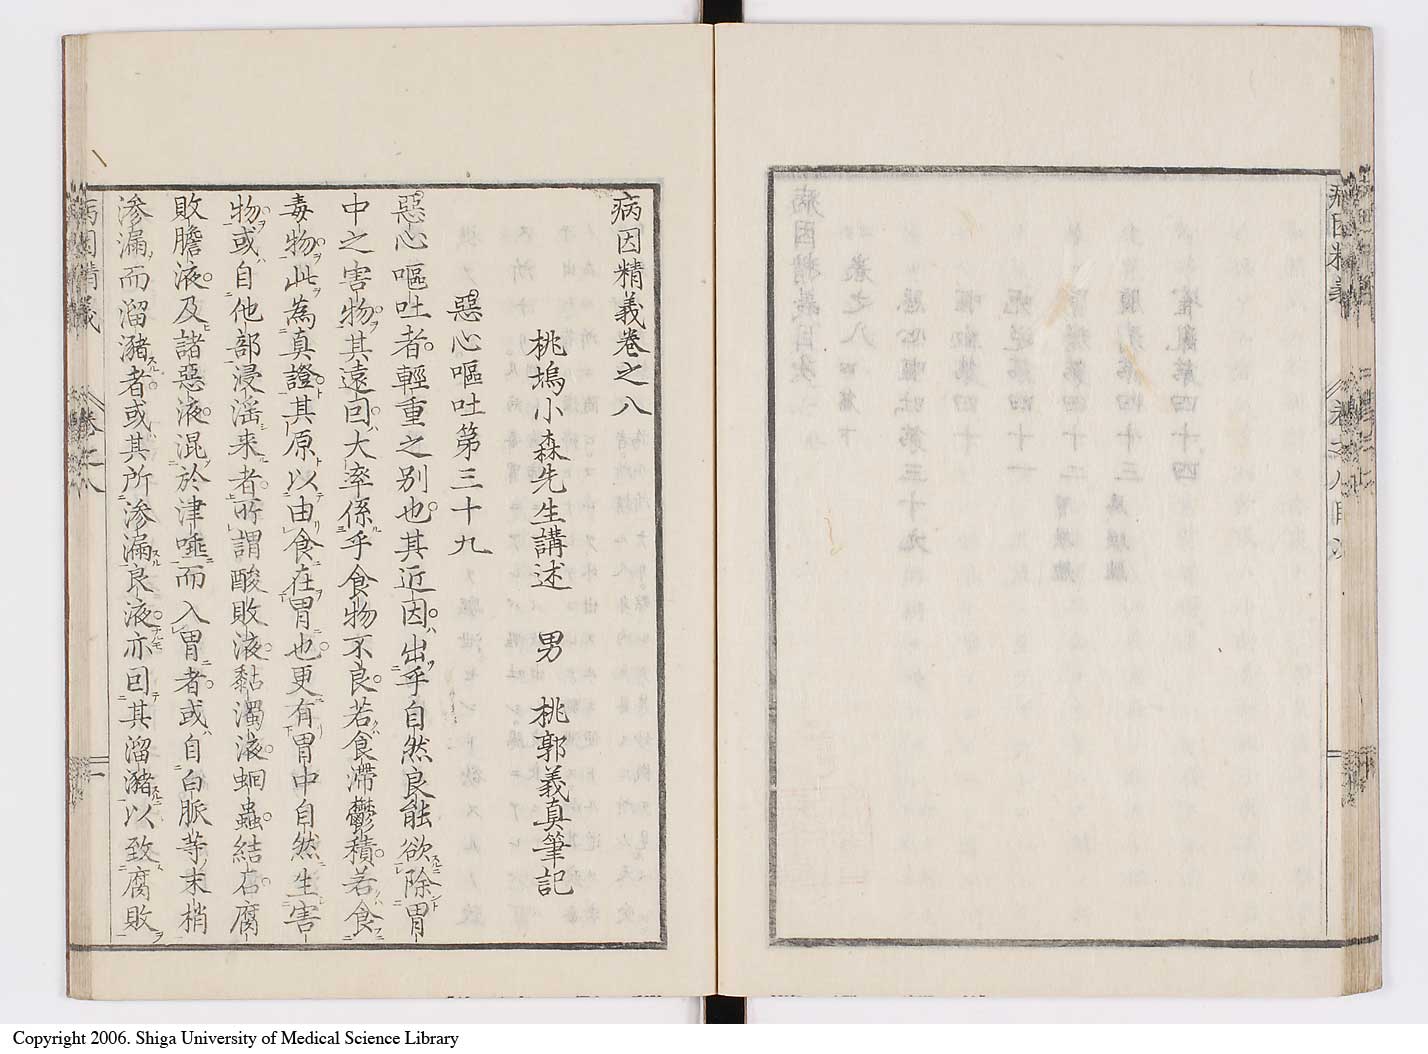 病因精義卷之八
桃塢小森先生講述 男 桃郭義真筆記
惡心嘔吐第三十九
惡心嘔吐者輕重之別也其近因出乎自然良能欲除胃
中之害物其遠因大率係乎食物不良若食滯鬱積若食
毒物此為真證其原以由食在胃也更有胃中自然生害
物或自他部浸滛来者所謂酸敗液黏濁液蛔蟲結石腐
敗膽液及諸惡液混於津唾而入胃者或自白脈等末梢
滲漏而溜瀦者或其所滲漏良液亦因其溜瀦以致腐敗
病因精義
卷之八
一
Copyright 2006. Shiga University of Medical Science Library